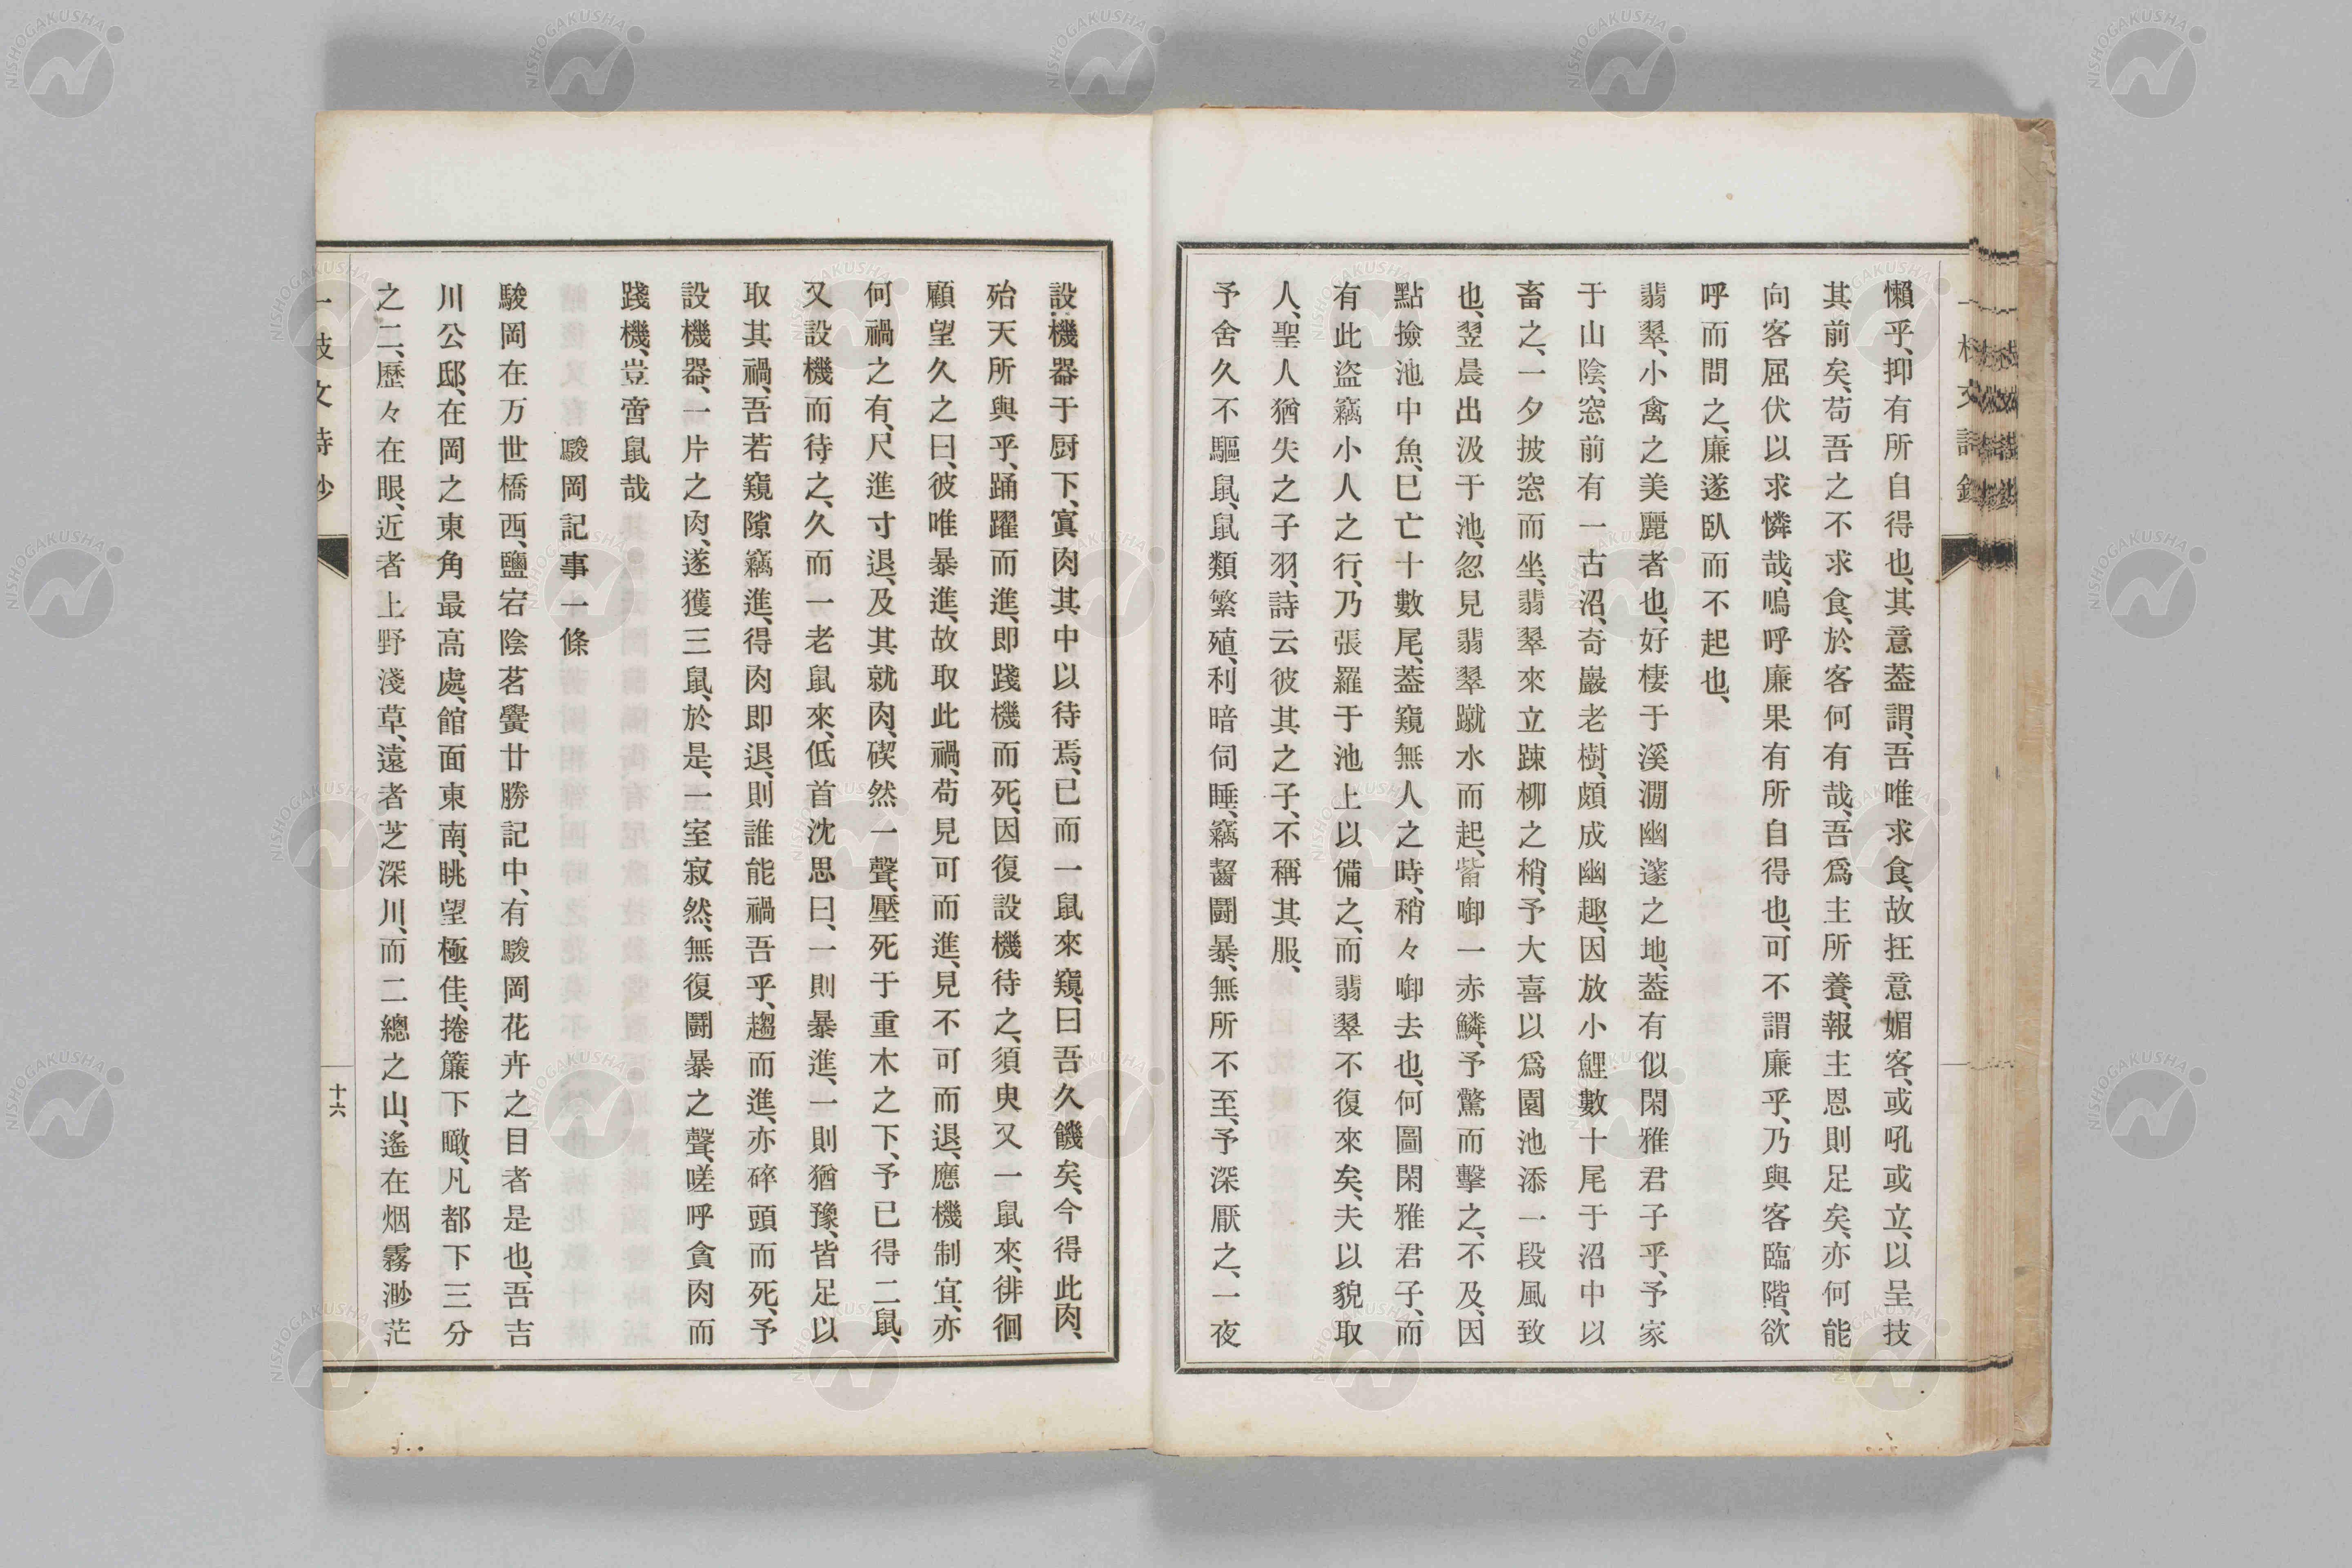 懶乎、抑有所自得也、其意葢謂、吾唯求食、故抂意媚客、或吼或立、以呈技
其前矣、苟吾之不求食、於客何有哉、吾爲主所養、報主恩則足矣、亦何能
向客屈伏以求憐哉、嗚呼廉果有所自得也、可不謂廉乎、乃與客臨階、欲
呼而問之、廉遂臥而不起也、
翡翠、小禽之美麗者也、好棲于溪澗幽邃之地、葢有似閑雅君子乎、予家
于山陰、窓前有一古沼、奇巖老樹、頗成幽趣、因放小鯉數十尾于沼中以
畜之、一夕披窓而坐、翡翠來立踈柳之梢、予大喜以爲園池添一段風致
也、翌晨出汲于池、忽見翡翠蹴水而起、觜啣一赤鱗、予驚而擊之、不及、因
點撿池中魚、已亡十數尾、葢窺無人之時、稍々啣去也、何圖閑雅君子、而
有此盜竊小人之行、乃張羅于池上以備之、而翡翠不復來矣、夫以貌取
人、聖人猶失之子羽、詩云彼其之子、不稱其服、
予舍久不驅鼠、鼠類繁殖、利暗伺睡、竊齧鬪暴、無所不至、予深厭之、一夜
設機器于厨下、寘肉其中以待焉、已而一鼠來窺、曰吾久饑矣、今得此肉、
殆天所與乎、踊躍而進、即踐機而死、因復設機待之、須臾又一鼠來、徘徊
顧望久之曰、彼唯暴進、故取此禍、苟見可而進、見不可而退、應機制宜、亦
何禍之有、尺進寸退、及其就肉、碶然一聲、壓死于重木之下、予已得二鼠、
又設機而待之、久而一老鼠來、低首沈思曰、一則暴進、一則猶豫、皆足以
取其禍、吾若窺隙竊進、得肉即退、則誰能禍吾乎、趨而進、亦碎頭而死、予
設機器、一片之肉、遂獲三鼠、於是、一室寂然、無復鬪暴之聲、嗟呼貪肉而
踐機、豈啻鼠哉
駿岡記事一條
駿岡在万世橋西、鹽宕陰茗黌廿勝記中、有駿岡花卉之目者是也、吾吉
川公邸、在岡之東角最高處、館面東南、眺望極佳、捲簾下瞰、凡都下三分
之二、歷々在眼、近者上野淺草、遠者芝深川、而二總之山、遙在烟霧渺茫
十六